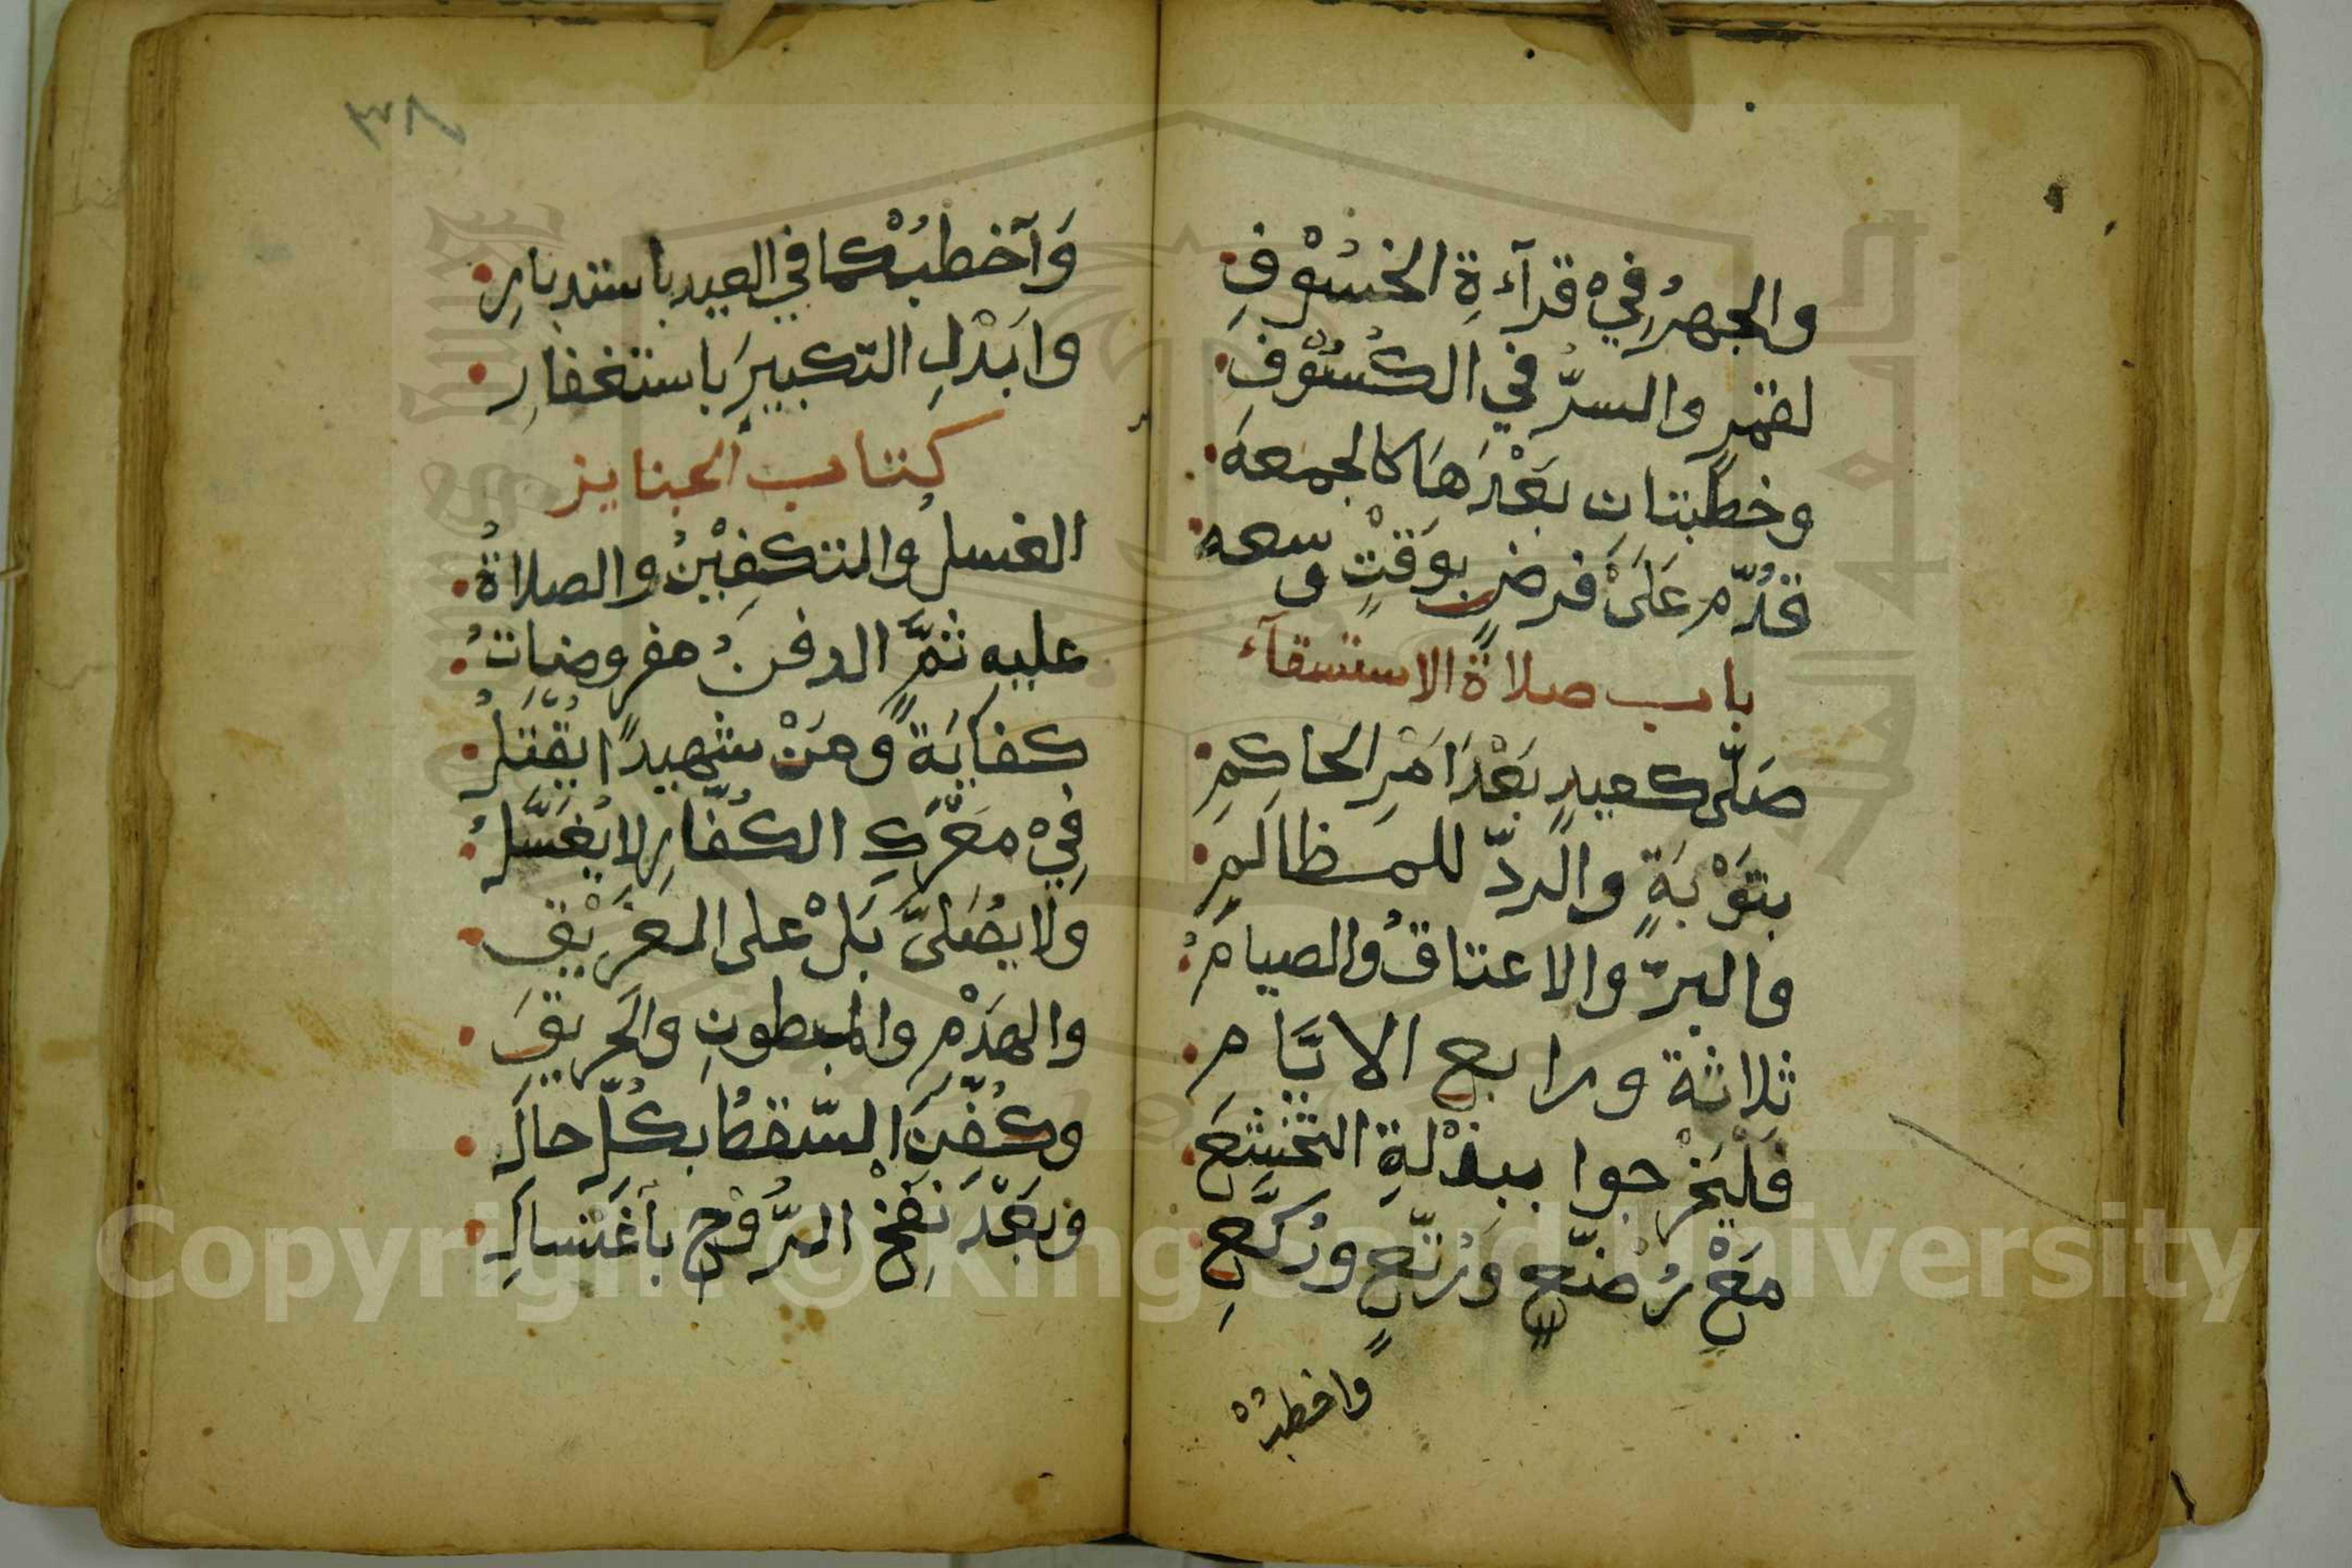 والجهرُ في قرآءةِ الخسُوْفِ
لقمرٍ والسرُّ في الكُسُوْفِ
وخطبتانِ بعْدَهَا كالجمعهَ
قدّم عَلَى فرضٍ بوَقتٍ وسعه
باب صلاة الاستسقآء
صَلّى كعيدٍ بَعْدَ امْرِ الحاكِمِ
بتوْبَةٍ والردّ للمظالمِ
والبرّ والاعتاقُ والصيامُ
ثلاثة ورابع الايَّام
فَليَخْرجوا ببذْلةِ التخشعَ
مَعْ رُضّعٍ وَرُتّعٍ ورُكّعِ
واخطبُْ
٣٨
وَآخطبْ كما في العيد باستدبارِ
وابْدلِ التكبيرَ باستغفارِ
كتاب الجنايز
الغسلُ والتكفِيْنُ والصلاةُ
عليه ثمَّ الدفنُ مفروضاتُ
كفايَةً ومَنْ شهيدًا يُقتَلُ
في معْرَكِ الكُفّارِ لا يُغسَّلُ
ولا يُصَلىَّ بَلْ على الغَرِيْقِ
والهَدْمِ والمبطونِ والحَريقِ
وكُفّنَ السّقطُ بكُلّ حالِ
وبَعْدَ نَفْخِ الرُّوْحِ باغْتسالِ
Copyright © King Saud University